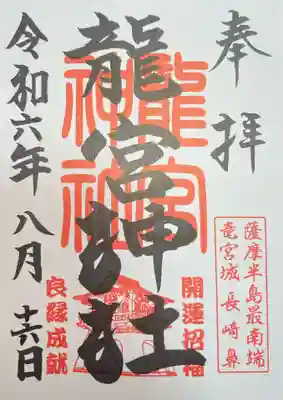 奉拝
薩摩半島最南端
竜宮城長崎鼻
龍宮神社
龍宮
神社
開運招福
良縁成就
令和六年八月十六日